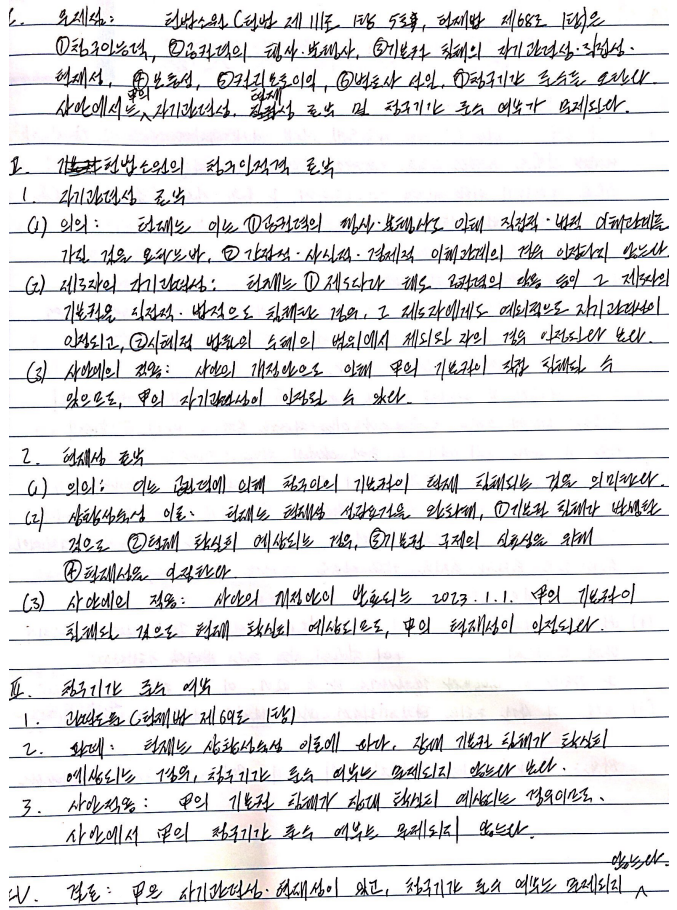 I. 문제점: 헌법소원(헌법 제111조 1항 5호, 헌재법 제68조 1항)은
①청구인능력, ②공권력의 행사·불행사, ③기본권 침해의 자기관련성·직접성·
현재성, ④보충성, ⑤권리보호이익, ⑥변호사 선임, ⑦청구기간 준수를 요한다.
사안에서는 甲의 자기관련성, 현재성 충족 및 청구기간 준수 여부가 문제된다.
II. 헌법소원의 청구인적격 충족
1. 자기관련성 충족
(1) 의의: 헌재는 이는 ①공권력의 행사·불행사로 인해 직접적·법적 이해관계를
가질 것을 요하는바, ②간접적·사실적·경제적 이해관계의 경우 인정하지 않는다.
(2) 제3자의 자기관련성: 헌재는 ①제3자라 해도 공권력의 작용 등이 그 제3자의
기본권을 직접적·법적으로 침해한 경우, 그 제3자에게도 예외적으로 자기관련성이
인정되고, ②시혜적 법률의 수혜의 범위에서 제외된 자의 경우 인정된다 본다.
(3) 사안에의 적용: 사안의 개정안으로 인해 甲의 기본권이 직접 침해될 수
있으므로, 甲의 자기관련성이 인정될 수 있다.
2. 현재성 충족
(1) 의의: 이는 공권력에 의해 청구인의 기본권이 현재 침해되는 것을 의미한다.
(2) 상황성숙성 이론: 헌재는 현재성 요건을 완화해, ①기본권 침해가 발생할
것으로 ②현재 확실히 예상되는 경우, ③기본권 구제의 실효성을 위해
④현재성을 인정한다.
(3) 사안에의 적용: 사안의 개정안이 발효되는 2023.1.1. 甲의 기본권이
침해될 것으로 현재 확실히 예상되므로, 甲의 현재성이 인정된다.
III. 청구기간 준수 여부
1. 관련조문 (헌재법 제69조 1항)
2. 판례: 헌재는 상황성숙성 이론에 따라, 장래 기본권 침해가 확실히
예상되는 경우, 청구기간 준수 여부는 문제되지 않는다 본다.
3. 사안적용: 甲의 기본권 침해가 장래 확실히 예상되는 경우이므로,
사안에서 甲의 청구기간 준수 여부는 문제되지 않는다.
IV. 결론: 甲은 자기관련성·현재성이 있고, 청구기간 준수 여부는 문제되지 않는다.